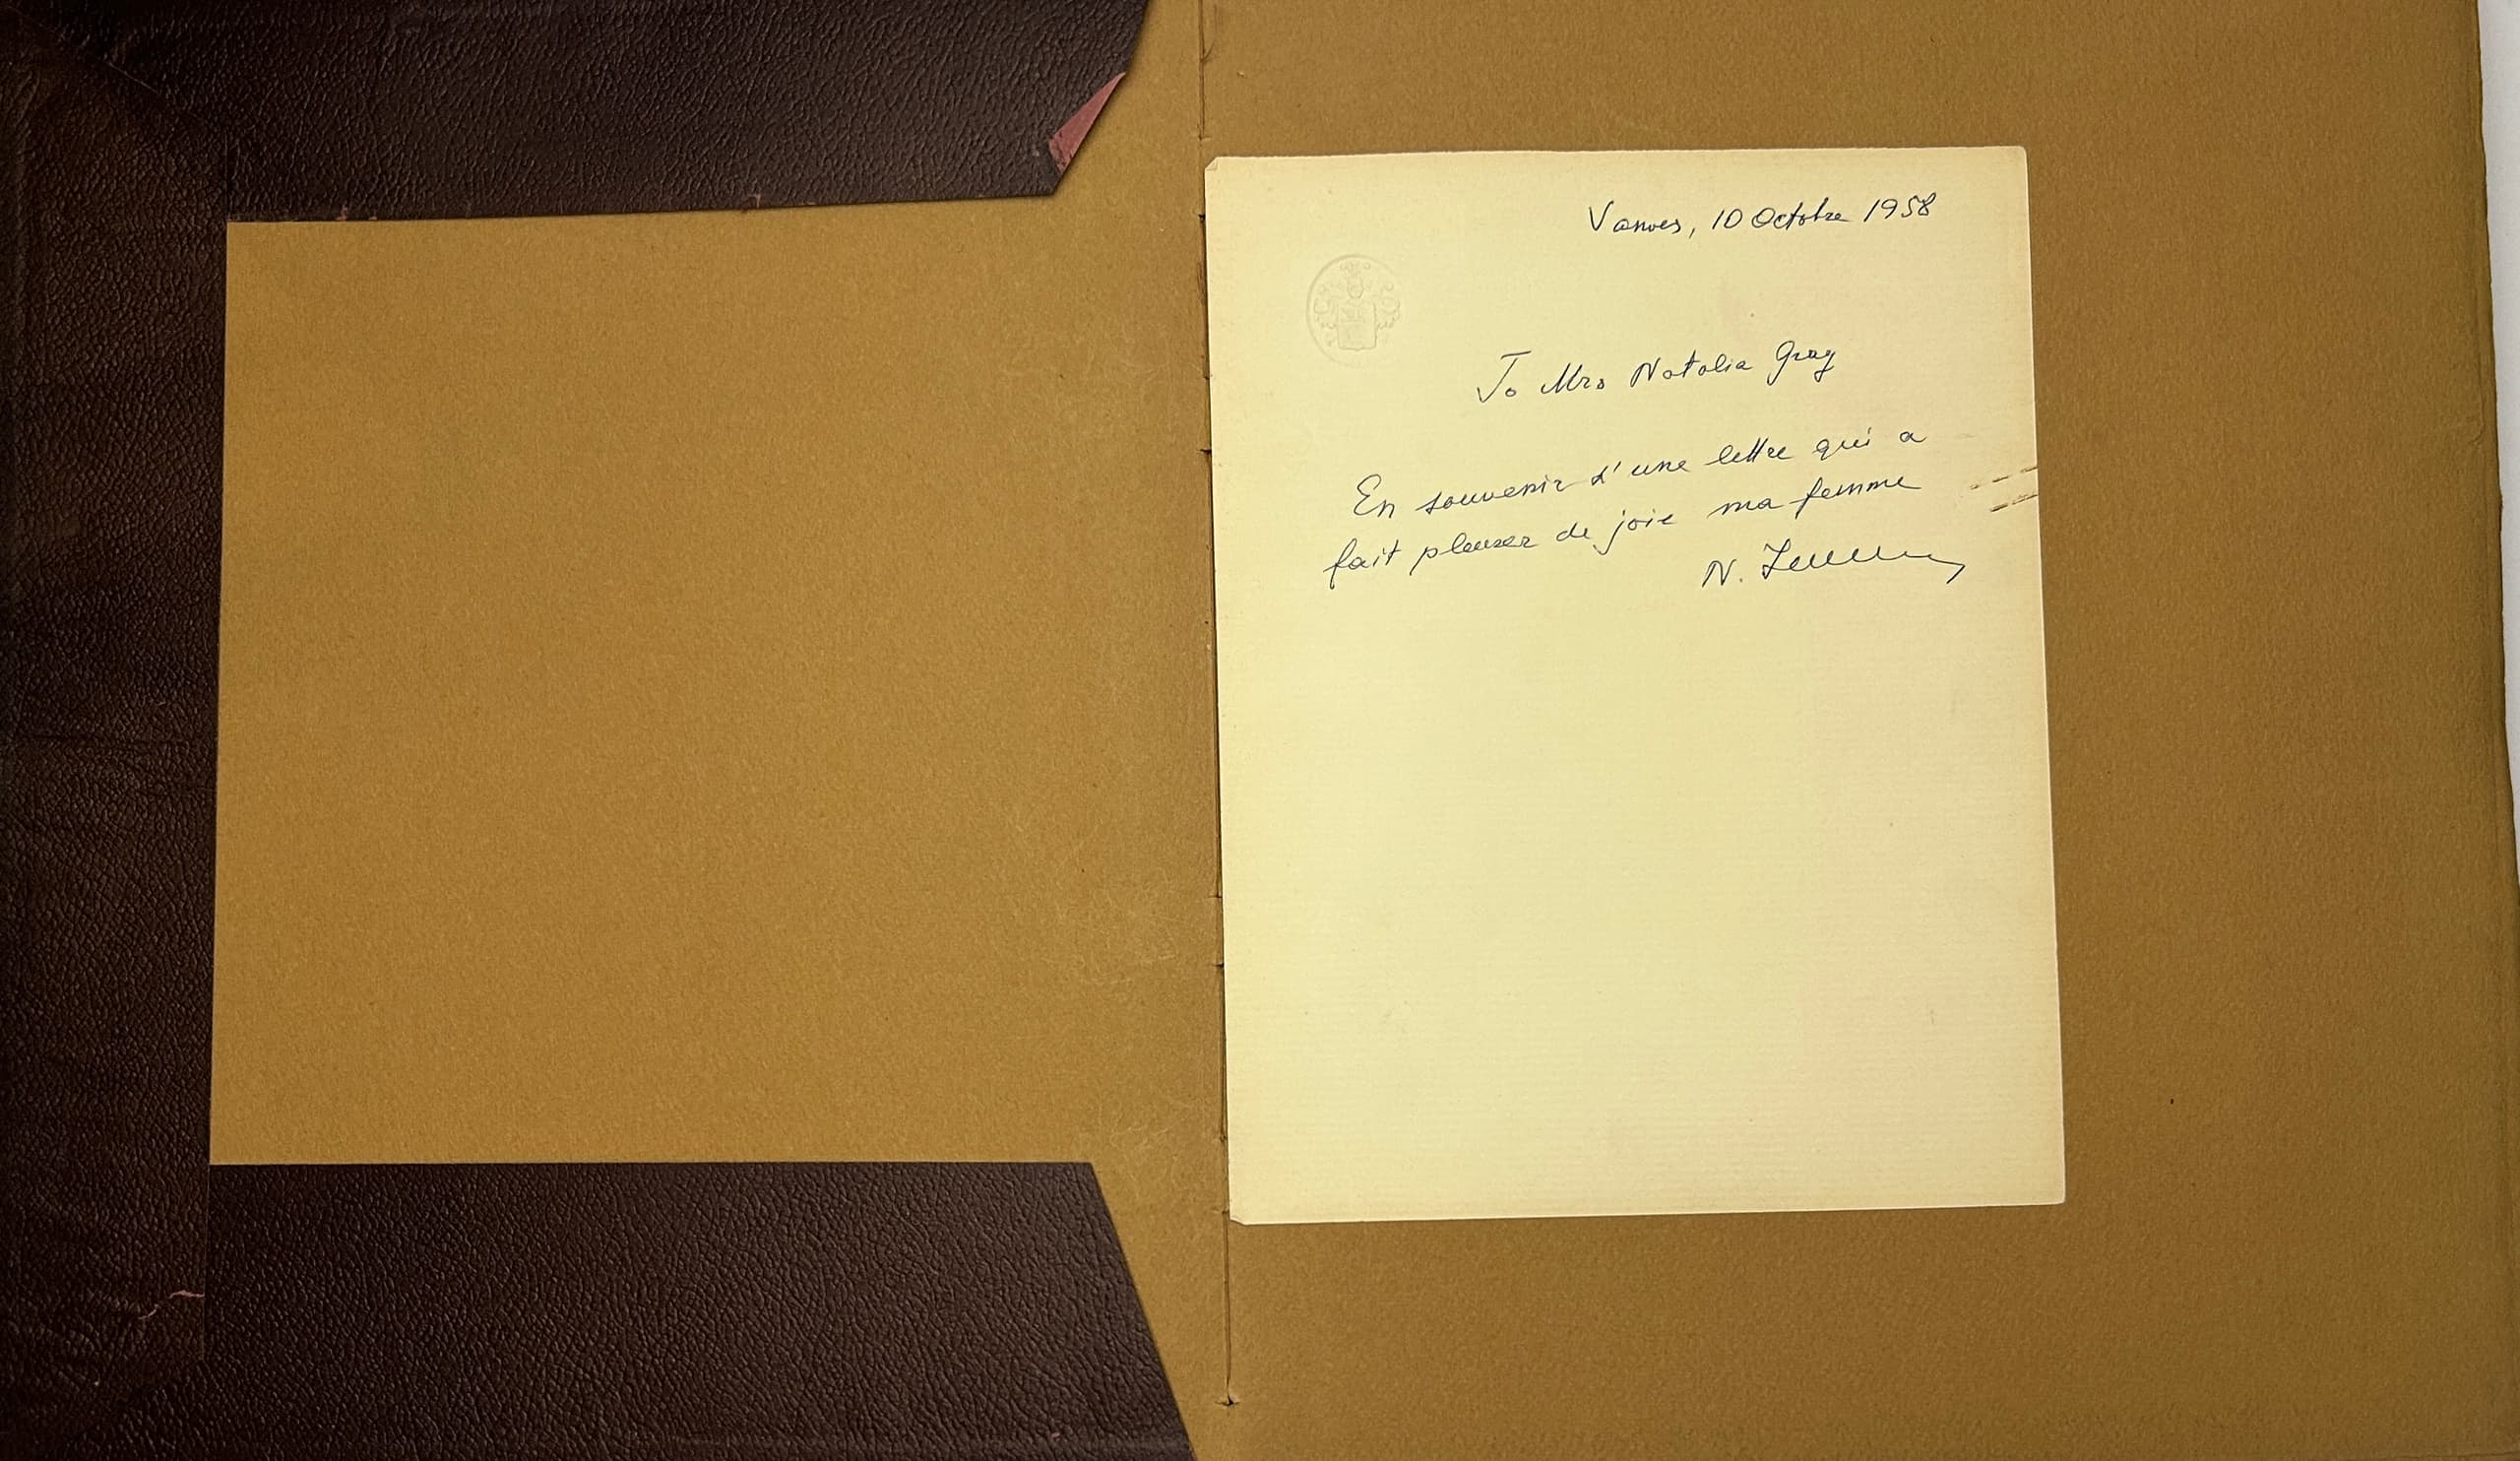 Vanves, 10 Octobre 1958
To Mrs Natalia Gray
En souvenir d'une lettre qui a
fait pleurer de joie ma femme
N.